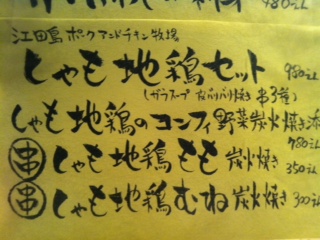 980えん
江田島ポークアンドチキン牧場
しゃも地鶏セット 980えん
(ガラスープ 皮パリパリ焼き 串3種)
しゃも地鶏のコンフィ野菜炭火焼き添
780えん
串 しゃも地鶏もも炭火焼き
350えん
串 しゃも地鶏むね炭火焼き 300えん